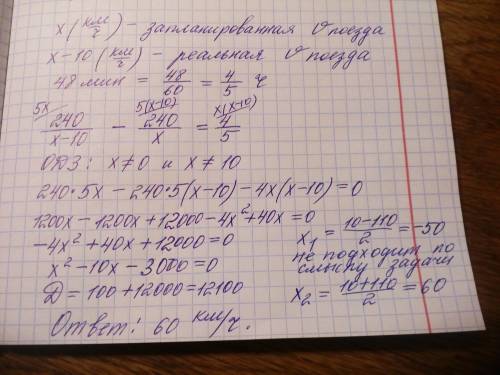 x (км/ч) – запланированная v поезда
x-10 (км/ч) – реальная v поезда
48 мин = 48/60 = 4/5 ч
5x/ 240/(x-10) - 5(x-10)/ 240/x = x(x-10)/ 4/5
ОДЗ: x≠0 и x≠10
240·5x - 240·5(x-10) - 4x(x-10) = 0
1200x - 1200x + 12000 - 4x² + 40x = 0
-4x² + 40x + 12000 = 0
x² - 10x - 3000 = 0
D = 100 + 12000 = 12100
x₁ = (10-110)/2 = -50
не подходит по
смыслу задачи
x₂ = (10+110)/2 = 60
Ответ: 60 км/ч.